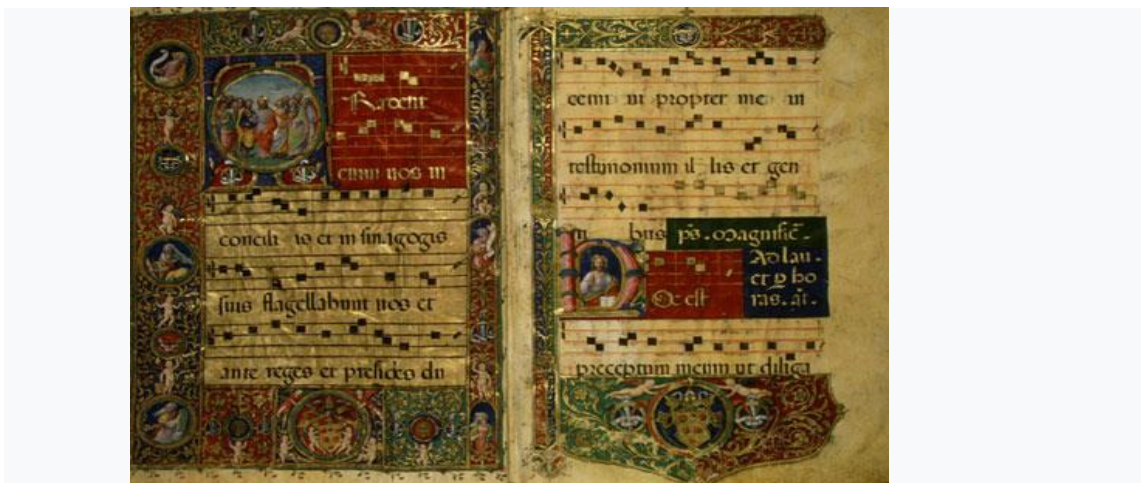 Tradent
enim uos in
concili is et in sinagogis
suis flagellabunt uos et
ante reges et presides du
cemi ni propter me in
testimonium il lis et gen
ti bus ps. Magnific̄.
Ad lau.
et p ho
ras. añ.
Hoc est
preceptum meum ut diliga